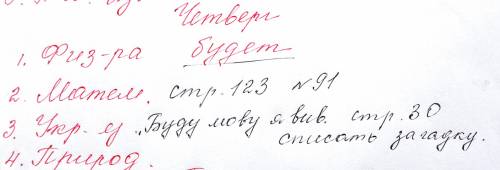 Четверг
1. Физ-ра будет
2. Матем. стр. 123 №91
3. Укр. яз „Буду мову я вив. стр. 30
списать загадку.
4. Природ.